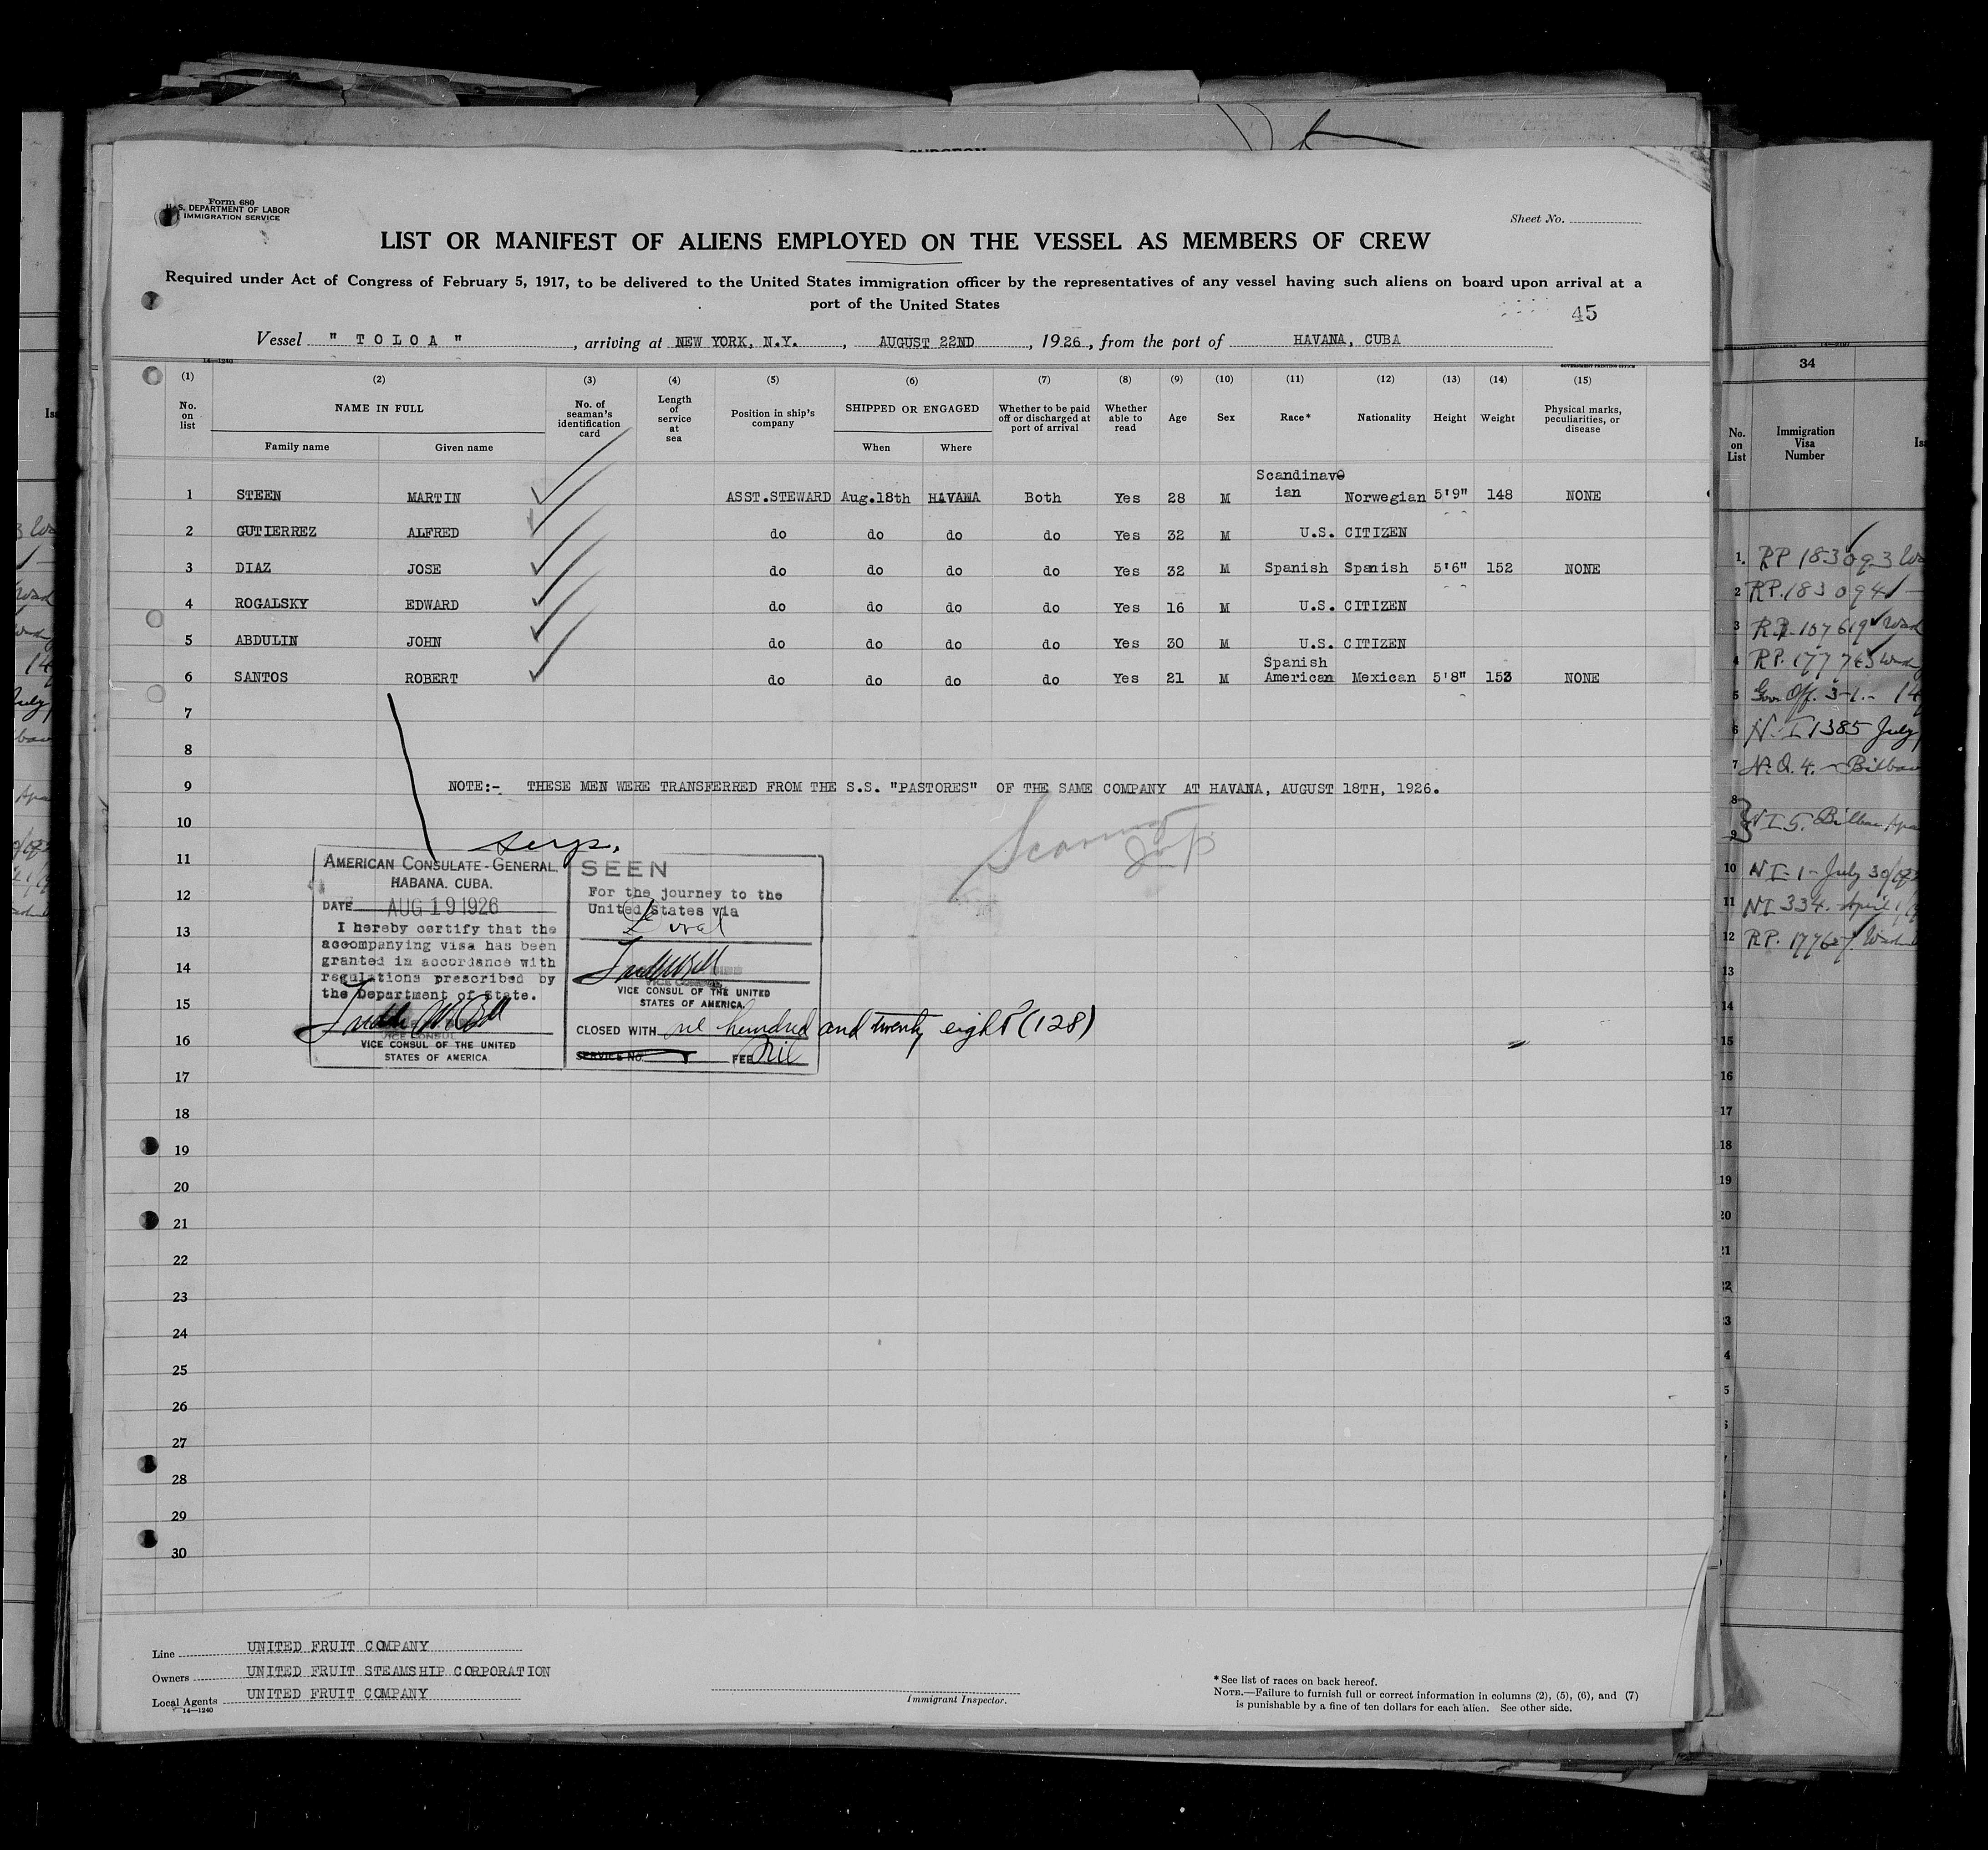 Form 680
U. S. DEPARTMENT OF LABOR
IMMIGRATION SERVICE
Sheet No.
LIST OR MANIFEST OF ALIENS EMPLOYED ON THE VESSEL AS MEMBERS OF CREW
Required under Act of Congress of February 5, 1917, to be delivered to the United States immigration officer by the representatives of any vessel having such aliens on board upon arrival at a
port of the United States
45
Vessel " T O L O A " , arriving at NEW YORK, N.Y. , AUGUST 22ND , 1926 , from the port of HAVANA, CUBA
14—1240 GOVERNMENT PRINTING OFFICE
(1) (2) (3) (4) (5) (6) (7) (8) (9) (10) (11) (12) (13) (14) (15)
No. on list NAME IN FULL Family name Given name No. of seaman's identification card Length of service at sea Position in ship's company SHIPPED OR ENGAGED When Where Whether to be paid off or discharged at port of arrival Whether able to read Age Sex Race* Nationality Height Weight Physical marks, peculiarities, or disease
1 STEEN MARTIN ASST.STEWARD Aug.18th HAVANA Both Yes 28 M Scandinav ian Norwegian 5'9" 148 NONE
2 GUTIERREZ ALFRED do do do do Yes 32 M U.S. CITIZEN
3 DIAZ JOSE do do do do Yes 32 M Spanish Spanish 5'6" 152 NONE
4 ROGALSKY EDWARD do do do do Yes 16 M U.S. CITIZEN
5 ABDULIN JOHN do do do do Yes 30 M U.S. CITIZEN
6 SANTOS ROBERT do do do do Yes 21 M Spanish American Mexican 5'8" 153 NONE
7
8
9 NOTE:- THESE MEN WERE TRANSFERRED FROM THE S.S. "PASTORES" OF THE SAME COMPANY AT HAVANA, AUGUST 18TH, 1926.
10
11
12
13
14
15
16
17
18
19
20
21
22
23
24
25
26
27
28
29
30
AMERICAN CONSULATE-GENERAL,
HABANA. CUBA.
DATE AUG 19 1926
I hereby certify that the
accompanying visa has been
granted in accordance with
regulations prescribed by
the Department of State.
VICE CONSUL
VICE CONSUL OF THE UNITED
STATES OF AMERICA
SEEN
For the journey to the
United States via
VICE CONSUL
VICE CONSUL OF THE UNITED
STATES OF AMERICA.
CLOSED WITH hundred and twenty eight (128)
SERVICE NO. FEE Nil
Line UNITED FRUIT COMPANY
Owners UNITED FRUIT STEAMSHIP CORPORATION
Local Agents UNITED FRUIT COMPANY
14—1240
Immigrant Inspector.
* See list of races on back hereof.
NOTE.—Failure to furnish full or correct information in columns (2), (5), (6), and (7)
is punishable by a fine of ten dollars for each alien. See other side.
34
No. on List Immigration Visa Number
1. RP 183093
2 RP. 183094
3 R.P. 107619 Wash
4 RP. 177763 Wash
5 Gov. Off. 3-1.- 14
6 N.I 1385 July
7 N.Q. 4. - Bilbao
8
9 NI 5. Bilbao
10 NI-1- July 30
11 NI 334. April 1
12 RP. 17762 Wash
13
14
15
16
17
18
19
20
21
22